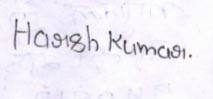 Harish Kumar.